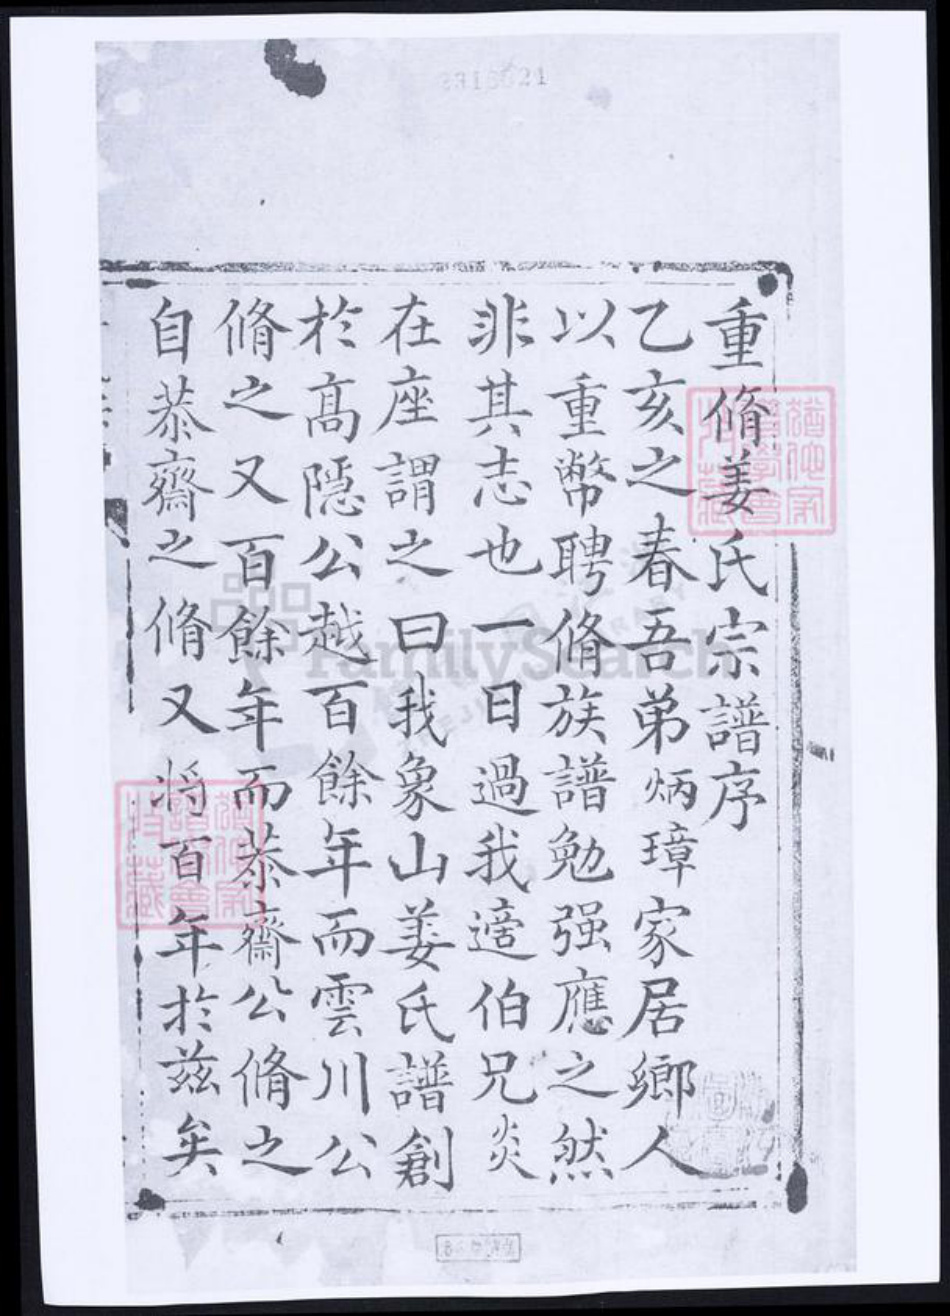 重脩姜氏宗譜序
乙亥之春吾弟炳璋家居鄉人
以重幣聘脩族譜勉强應之然
非其志也一日過我適伯兄炎
在座謂之曰我象山姜氏譜創
於高隱公越百餘年而雲川公
脩之又百餘年而恭齋公脩之
自恭齋之脩又將百年於兹矣
FamilySearch